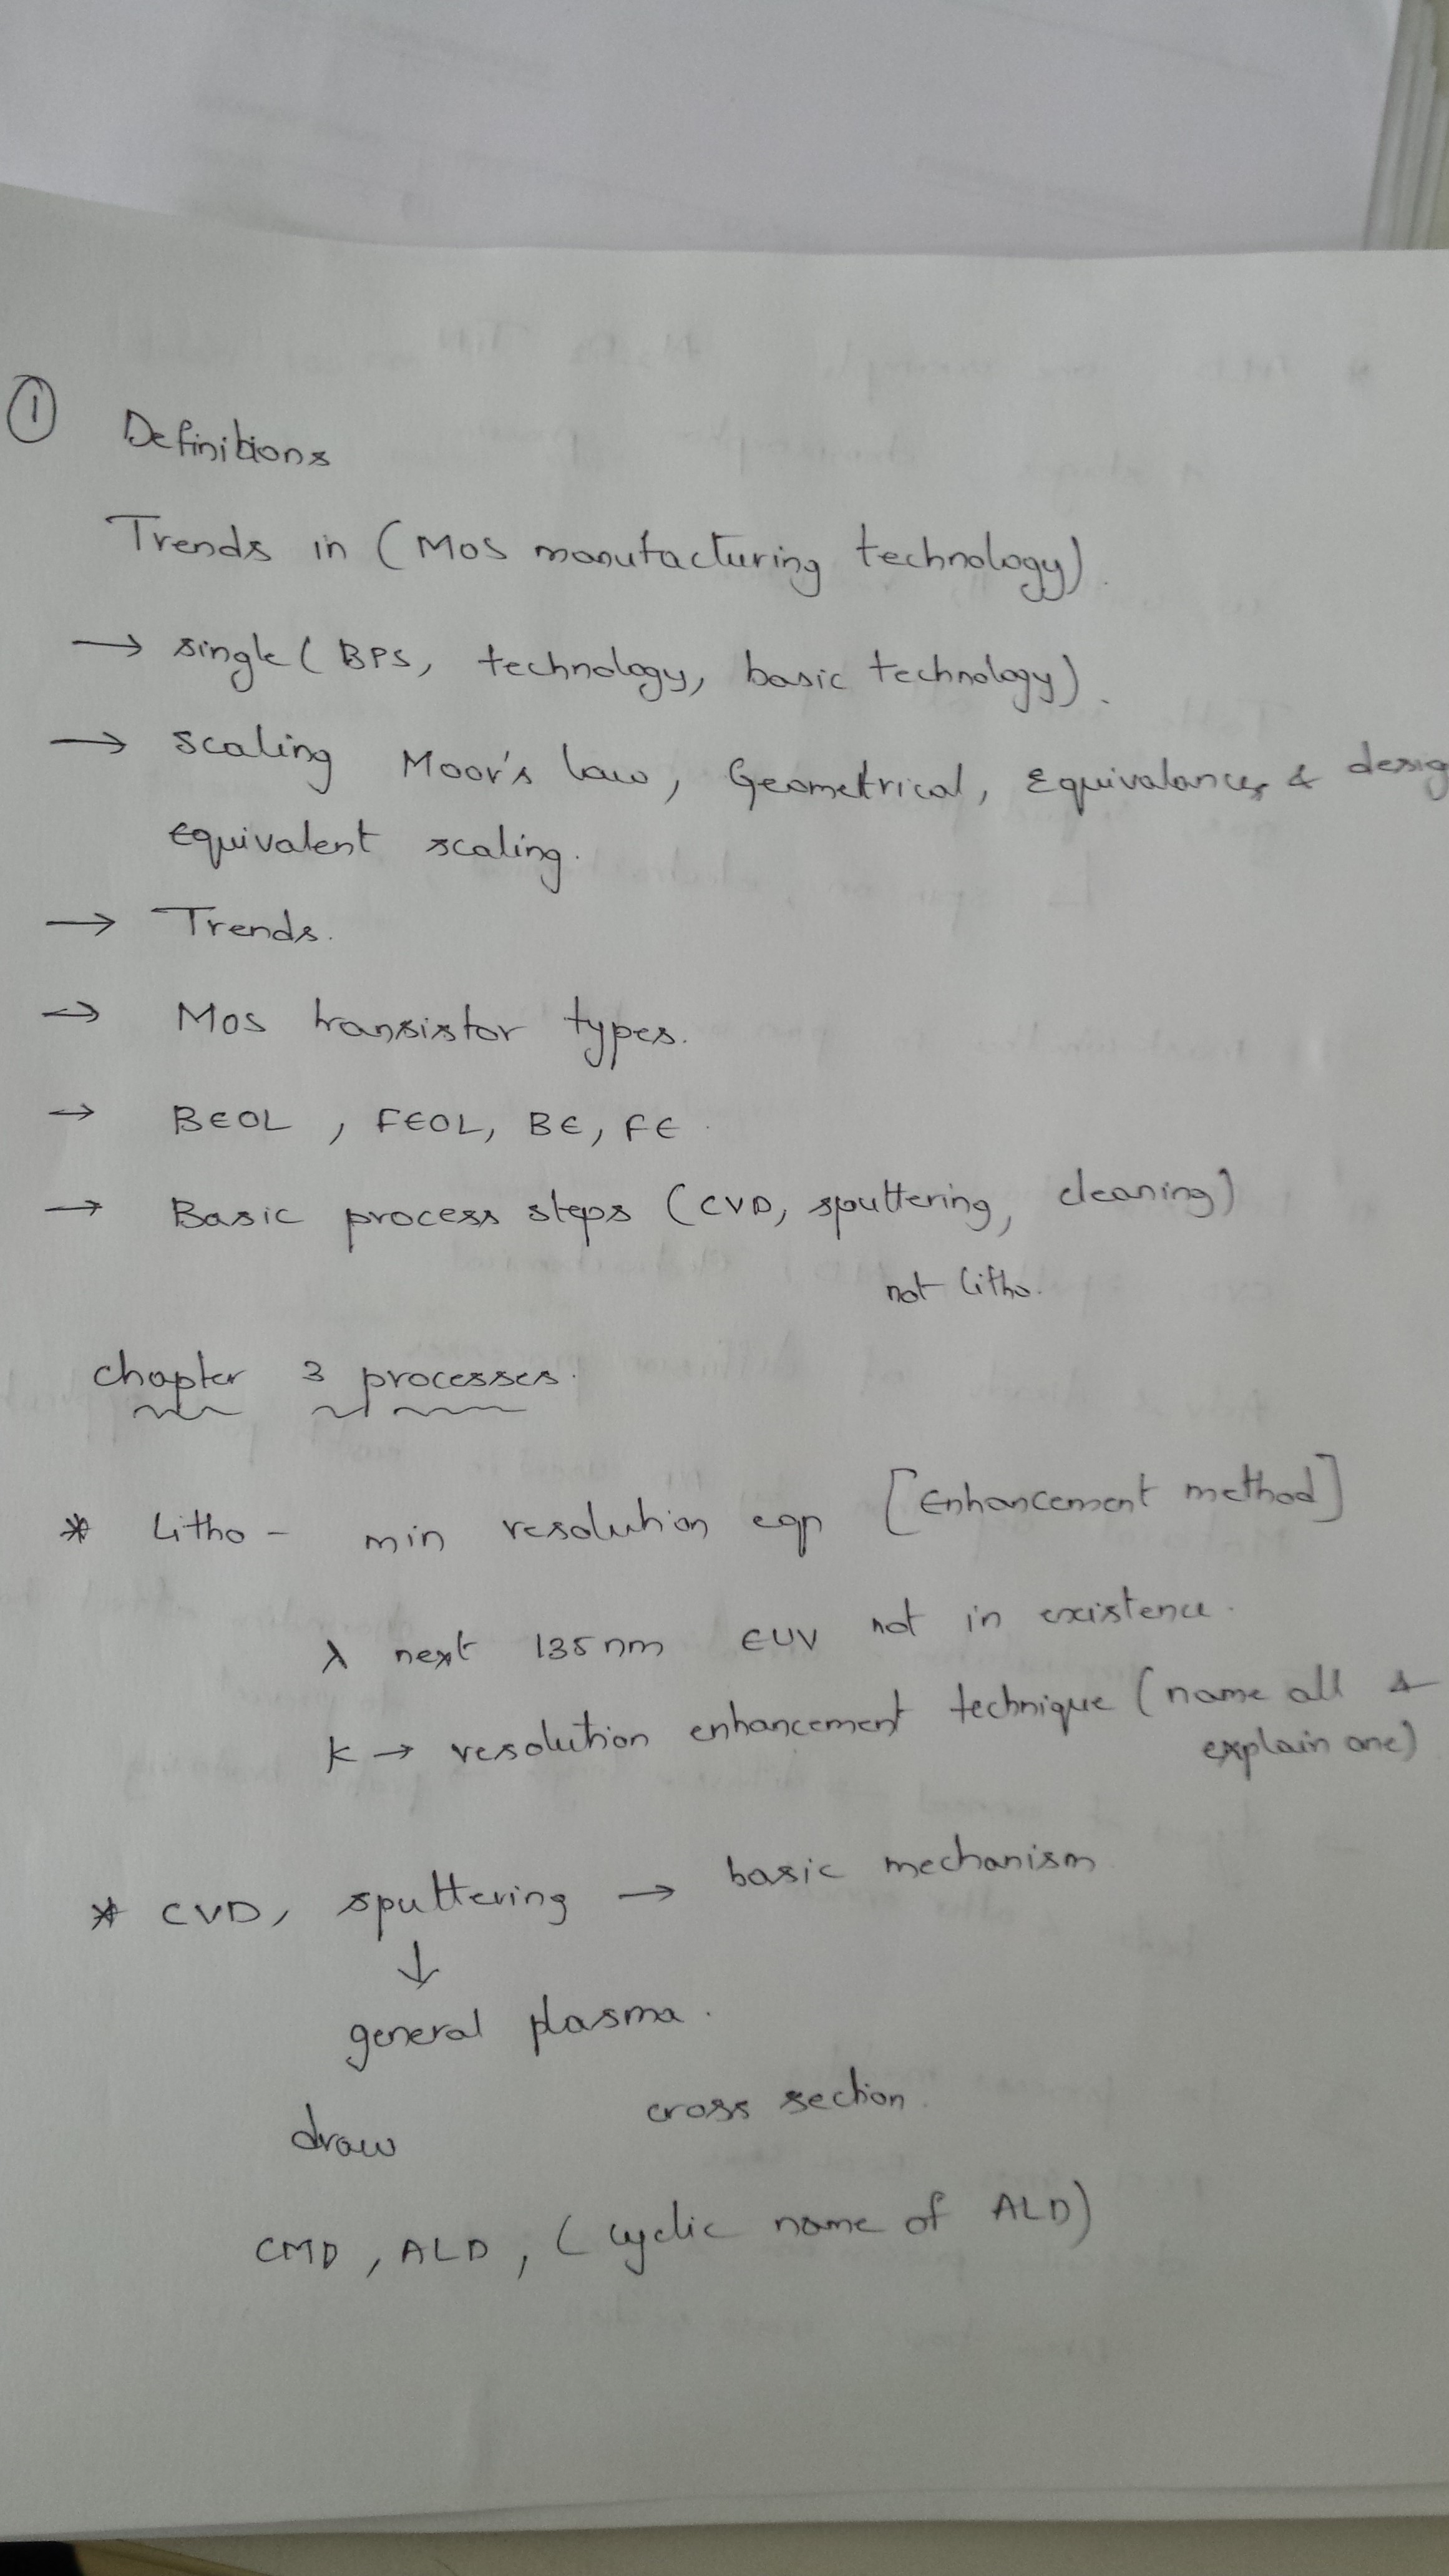 1
Definitions
Trends in (MOS manufacturing technology).
→ single (BPS, technology, basic technology).
→ scaling Moor's law, Geometrical, Equivalances & desig
equivalent scaling.
→ Trends.
→ MOS transistor types.
→ BEOL, FEOL, BE, FE.
→ Basic process steps (CVD, sputtering, cleaning)
not litho.
chapter 3 processes.
* Litho - min resolution eqn [Enhancement method]
λ next 135nm EUV not in existence.
K → resolution enhancement technique (name all &
explain one)
* CVD, sputtering → basic mechanism
↓
general plasma.
draw cross section.
CMD, ALD, (cyclic name of ALD)